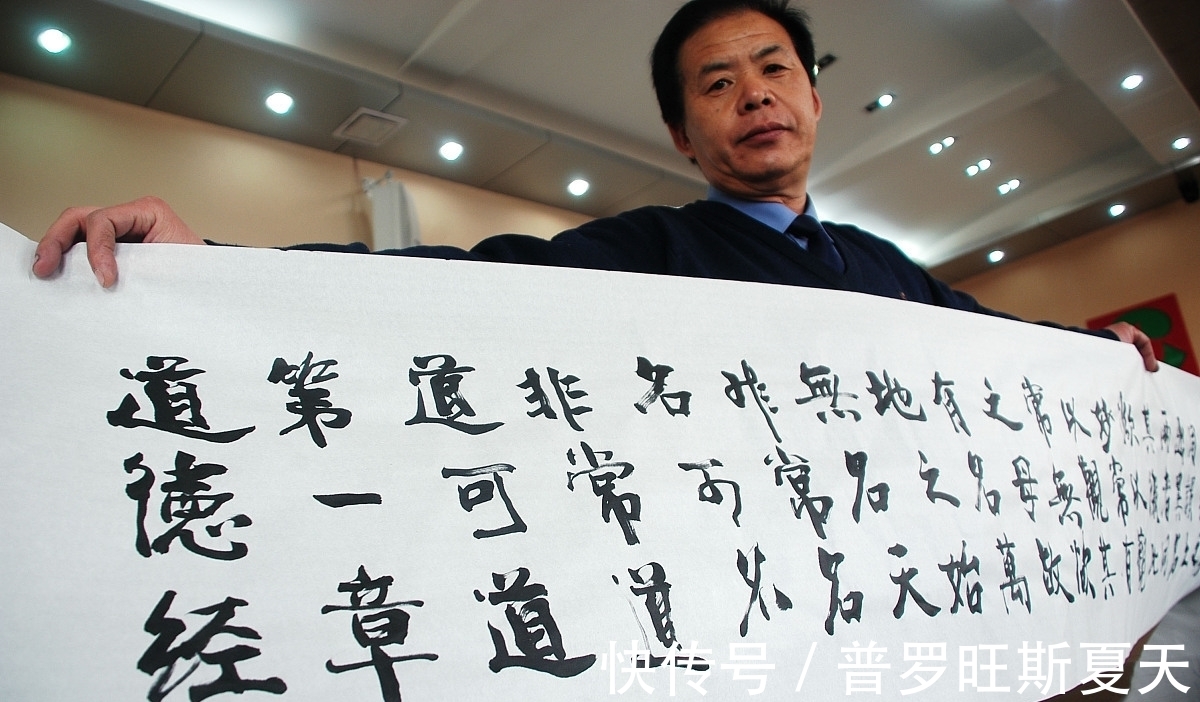 道德经
第一章
道可道
非常道
名可名
非常名
無名天
地之始
有名萬
之母故
常無欲
以觀其
妙常有
欲以
其
兩者同
快传号 / 普罗旺斯夏天